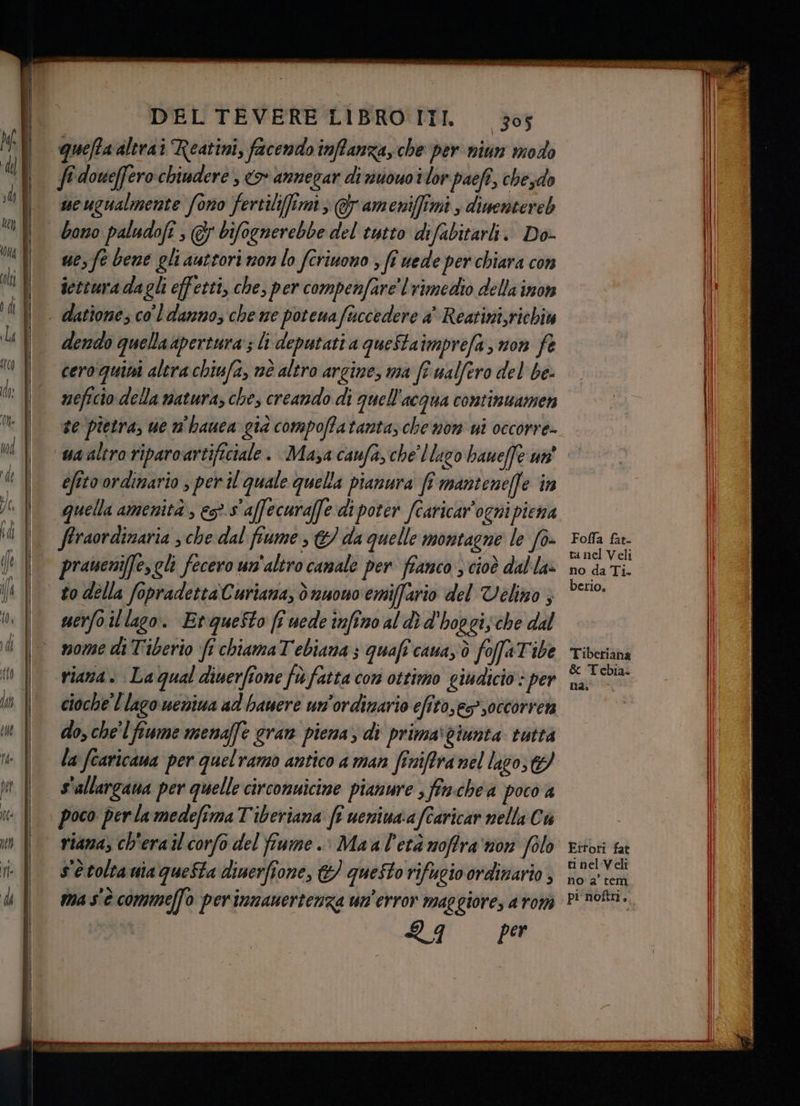 DEL TEVERE LIBRO III. 305
questa altra i Reatini, facendo instanza, che per niun modo
si douessero chiudere, &amp; annegar di nuouo i lor paesi, che, do
ue ugualmente sono fertilissimi, &amp; amenissimi, diuentereb
bono paludosi, &amp; bisognerebbe del tutto disabitarli. Do-
ue, se bene gli auttori non lo scriuono, si uede per chiara con
iettura dagli effetti, che, per compensare'l rimedio della inon
datione, co'l danno, che ne poteua succedere a' Reatini, richiu
dendo quella apertura; li deputati a questa impresa, non fe
cero quiui altra chiusa, nè altro argine, ma si ualsero del be-
neficio della natura, che, creando di quell'acqua continuamen
te pietra, ue n'hauea già composta tanta, che non ui occorre-
ua altro riparo artificiale. Ma, a causa, che'l lago hauesse un'
esito ordinario, per il quale quella pianura si mantenesse in
quella amenità, &amp; s'assecurasse di poter scaricar'ogni piena
straordinaria, che dal fiume, &amp; da quelle montagne le so-
prauenisse, gli fecero un'altro canale per fianco, cioè dal la-
to della sopradetta Curiana, ò nuouo emissario del Velino,
uerso il lago. Et questo si uede infino al dì d'hoggi, che dal
nome di Tiberio si chiama Tebiana; quasi caua, ò fossa Tibe
riana. La qual diuersione fù fatta con ottimo giudicio: per
cioche'l lago ueniua ad hauere un'ordinario esito, &amp;, occorren
do, che'l fiume menasse gran piena, di prima giunta tutta
la scaricaua per quel ramo antico a man sinistra nel lago, &amp;
s'allargaua per quelle circonuicine pianure, fin che a poco a
poco per la medesima Tiberiana si ueniua a scaricar nella Cu
riana, ch'era il corso del fiume. Ma a l'età nostra non solo
s'è tolta uia questa diuersione, &amp; questo rifugio ordinario,
ma s'è commesso per innauertenza un'error maggiore, a rom
Qq per
Fossa fat-
ta nel Veli
no da Ti-
berio.
Tiberiana
&amp; Tebia-
na.
Errori fat
ti nel Veli
no a' tem
pi nostri.